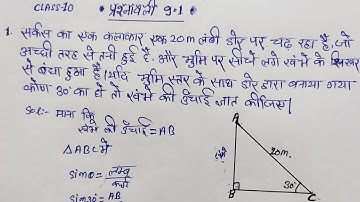 CLASS-10 * प्रश्नावली 9.1 *
1. सर्कस का एक कलाकार एक 20m लंबी डोर पर चढ़ रहा है, जो
अच्छी तरह से तनी हुई है, और भूमि पर सीधे लगे खंभे के शिखर
से बंधा हुआ है। यदि भूमि स्तर के साथ डोर द्वारा बनाया गया
कोण 30° का हो तो खंभे की ऊँचाई ज्ञात कीजिए।
Sol:- माना कि
खंभे की ऊँचाई = AB
△ABC में
sinθ = लम्ब/कर्ण
sin30° = AB
A
20m.
30°
B
C